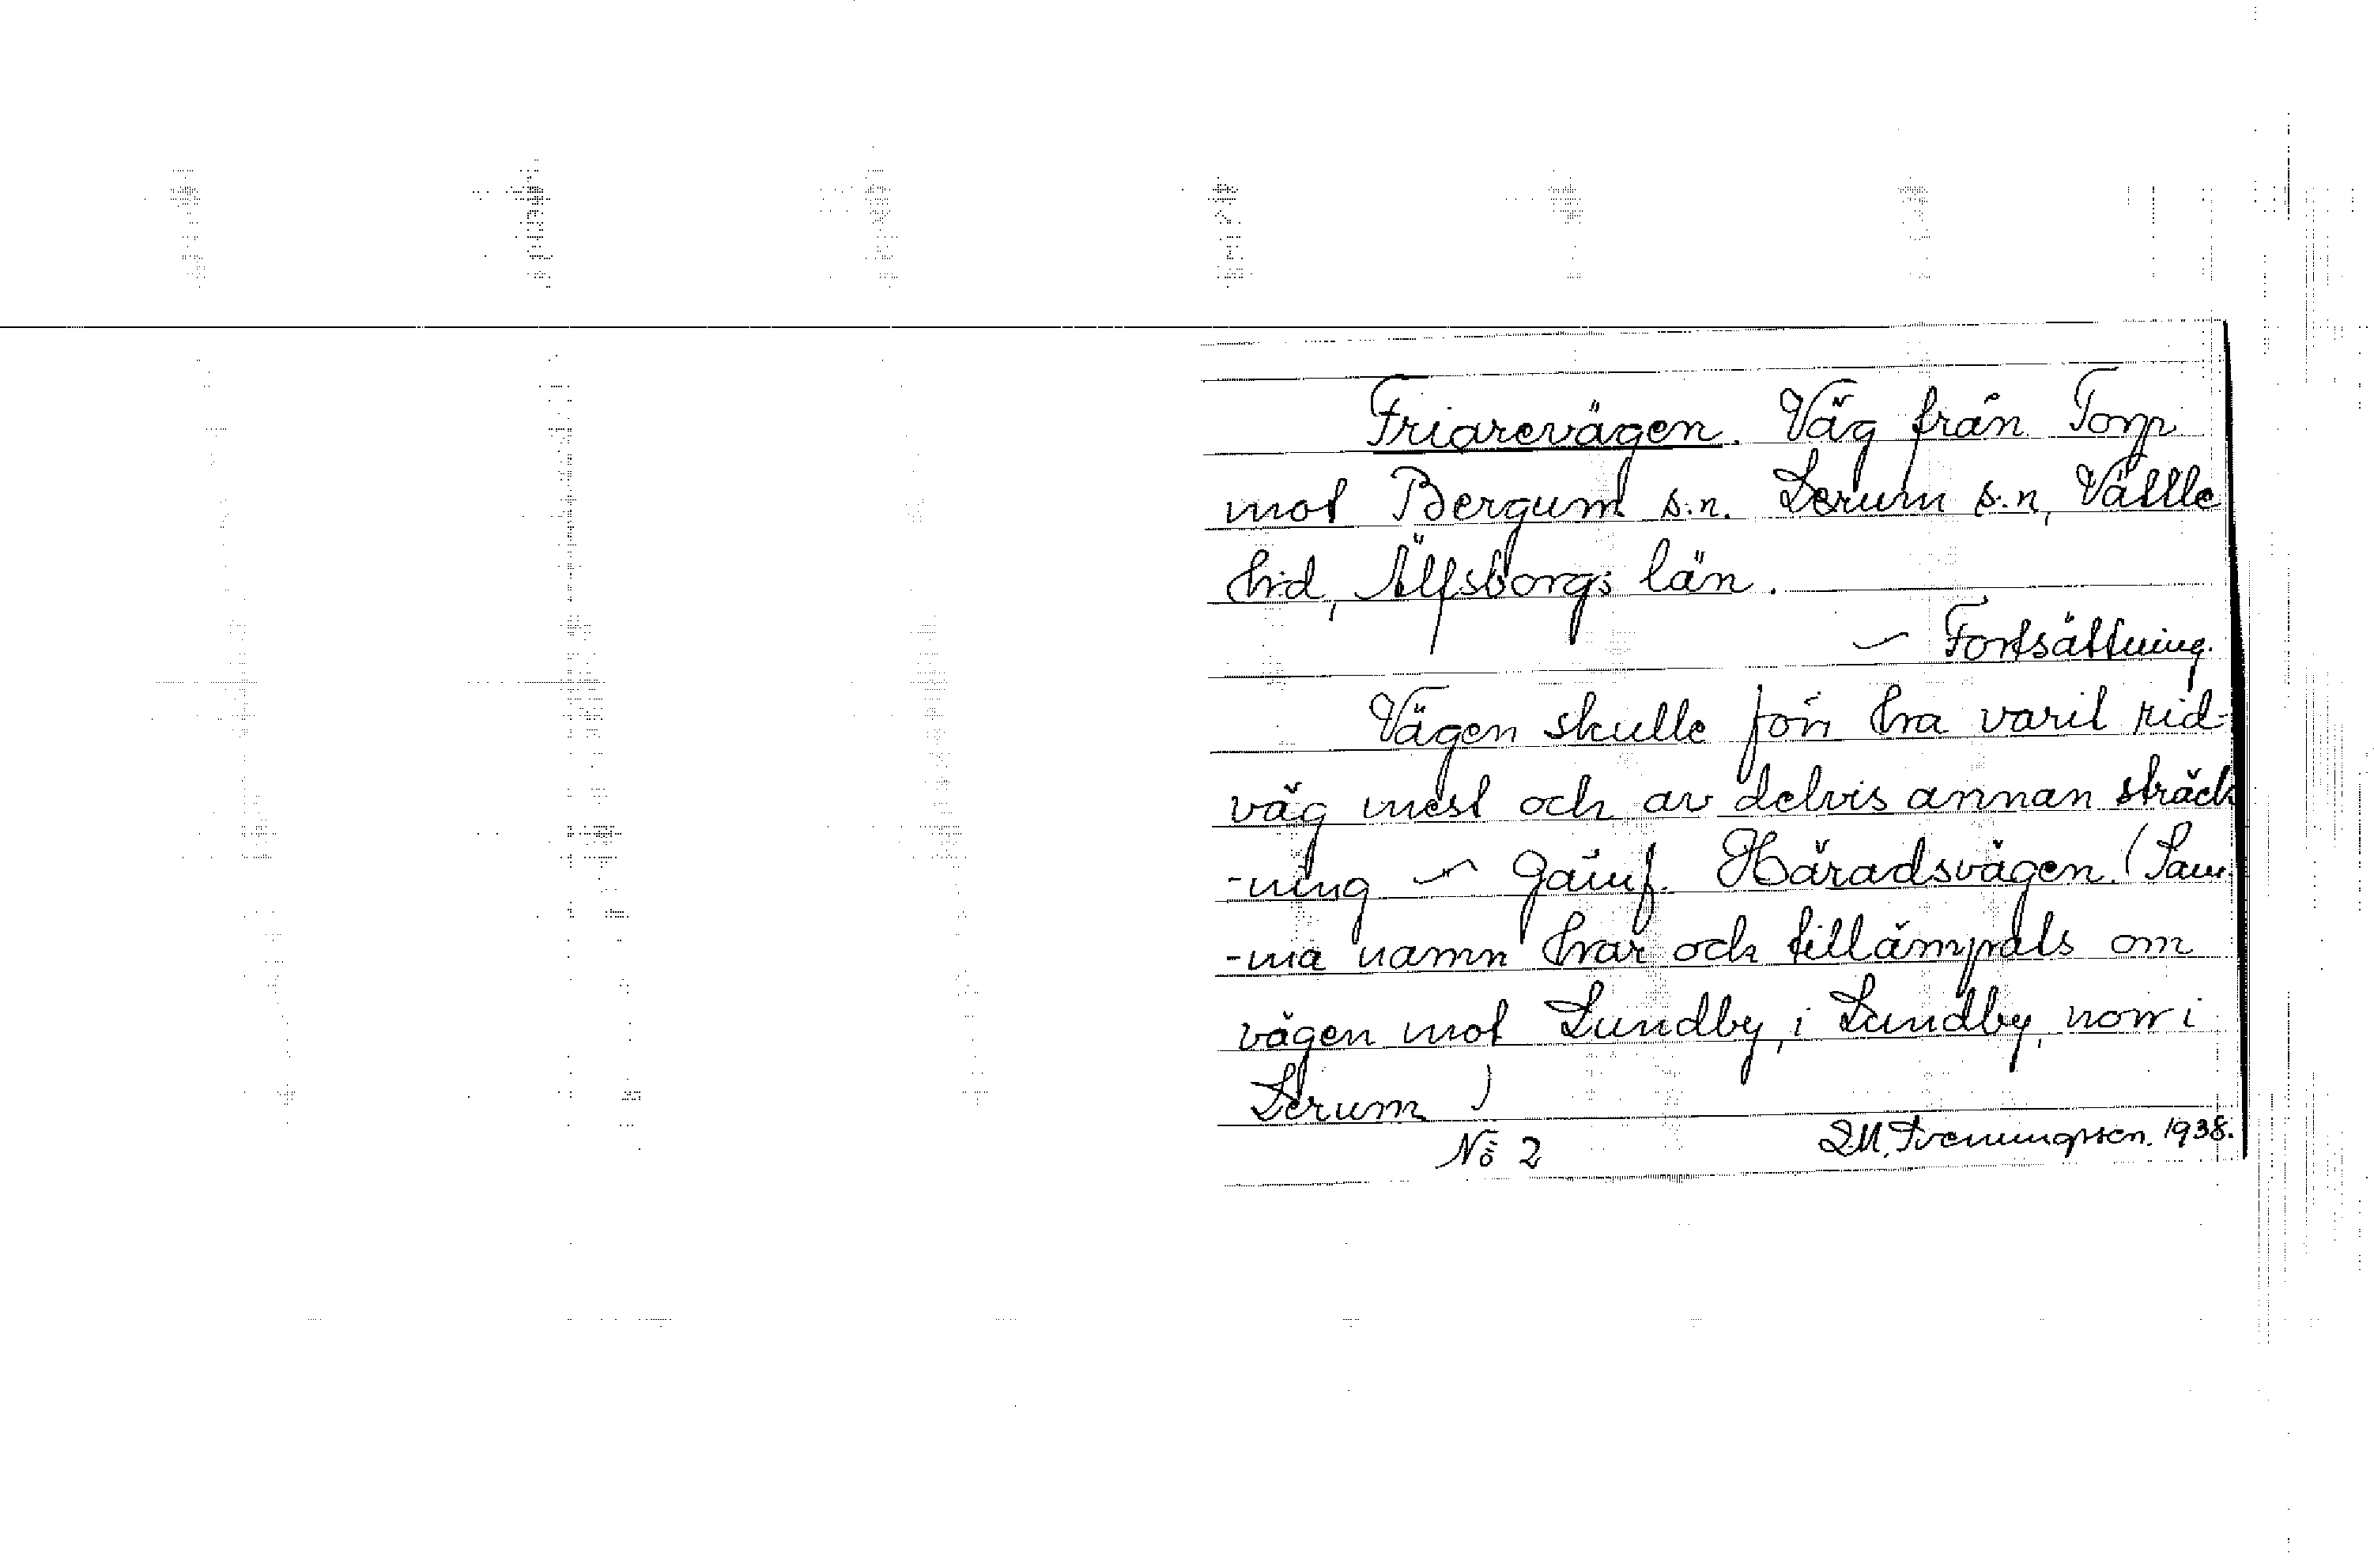 Friarevägen. Väg från Torp
mot Bergum s.n. Lerum s.n, Vättle
hrd, Älfsborgs län.
— Fortsättning.
Vägen skulle förr ha varit rid-
väg mest och av delvis annan sträck
-ning — Jämf. Häradsvägen. (Sam-
-ma namn har och tillämpats om
vägen mot Lundby, i Lundby, norr i
Lerum)
No 2
1938.